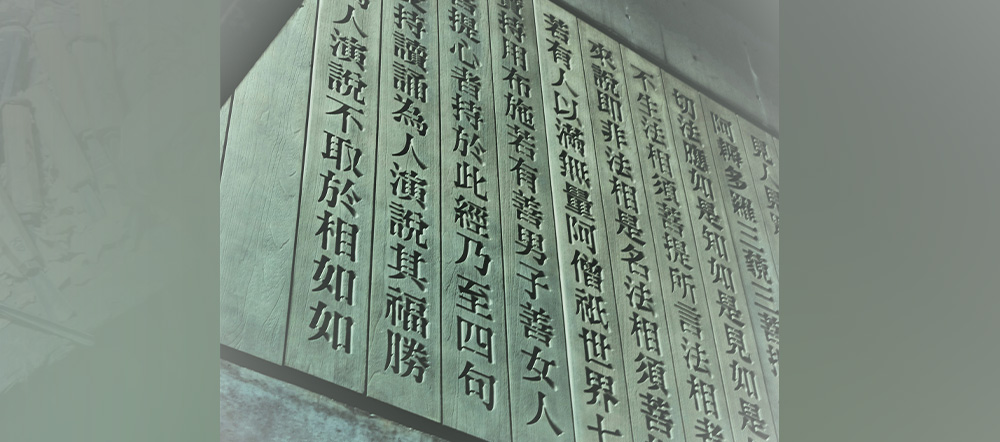 見人見
阿耨多羅三藐三菩
切法應如是知如是見如是
不生法相須菩提所言法相者
來說即非法相是名法相須菩
若有人以滿無量阿僧祇世界七
持用布施若有善男子善女人
菩提心者持於此經乃至四句
持讀誦為人演說其福勝
人演說不取於相如如